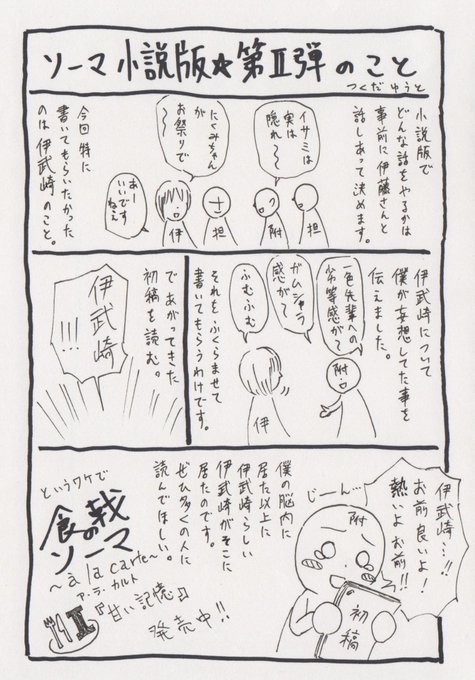 ソーマ小説版★第Ⅱ弾のこと
つくだゆうと
小説版で
どんな話をやるかは
事前に伊藤さんと
話しあって決めます。
イサミは
実は
隠れ〜
にくみちゃん
が
お祭りで
あー
いいです
ねえ
伊
担
附
担
今回特に
書いてもらいたかった
のは伊武崎のこと。
伊武崎について
僕が妄想してた事を
伝えました。
一色先輩への
劣等感が〜
ガムシャラ
感が〜
ふむふむ
附
伊
それをふくらませて
書いてもらうわけです。
であがってきた
初稿を読む。
伊武崎
!!!
伊武崎…!!
お前良いよ!
熱いよお前!!
じーん…
附
初稿
僕の脳内に
居た以上に
伊武崎らしい
伊武崎がそこに
居たのです。
ぜひ多くの人に
読んでほしい。
というワケで
食戟の
ソーマ
〜à la carte〜
ア・ラ・カルト
Ⅱ
『甘い記憶』
発売中!!